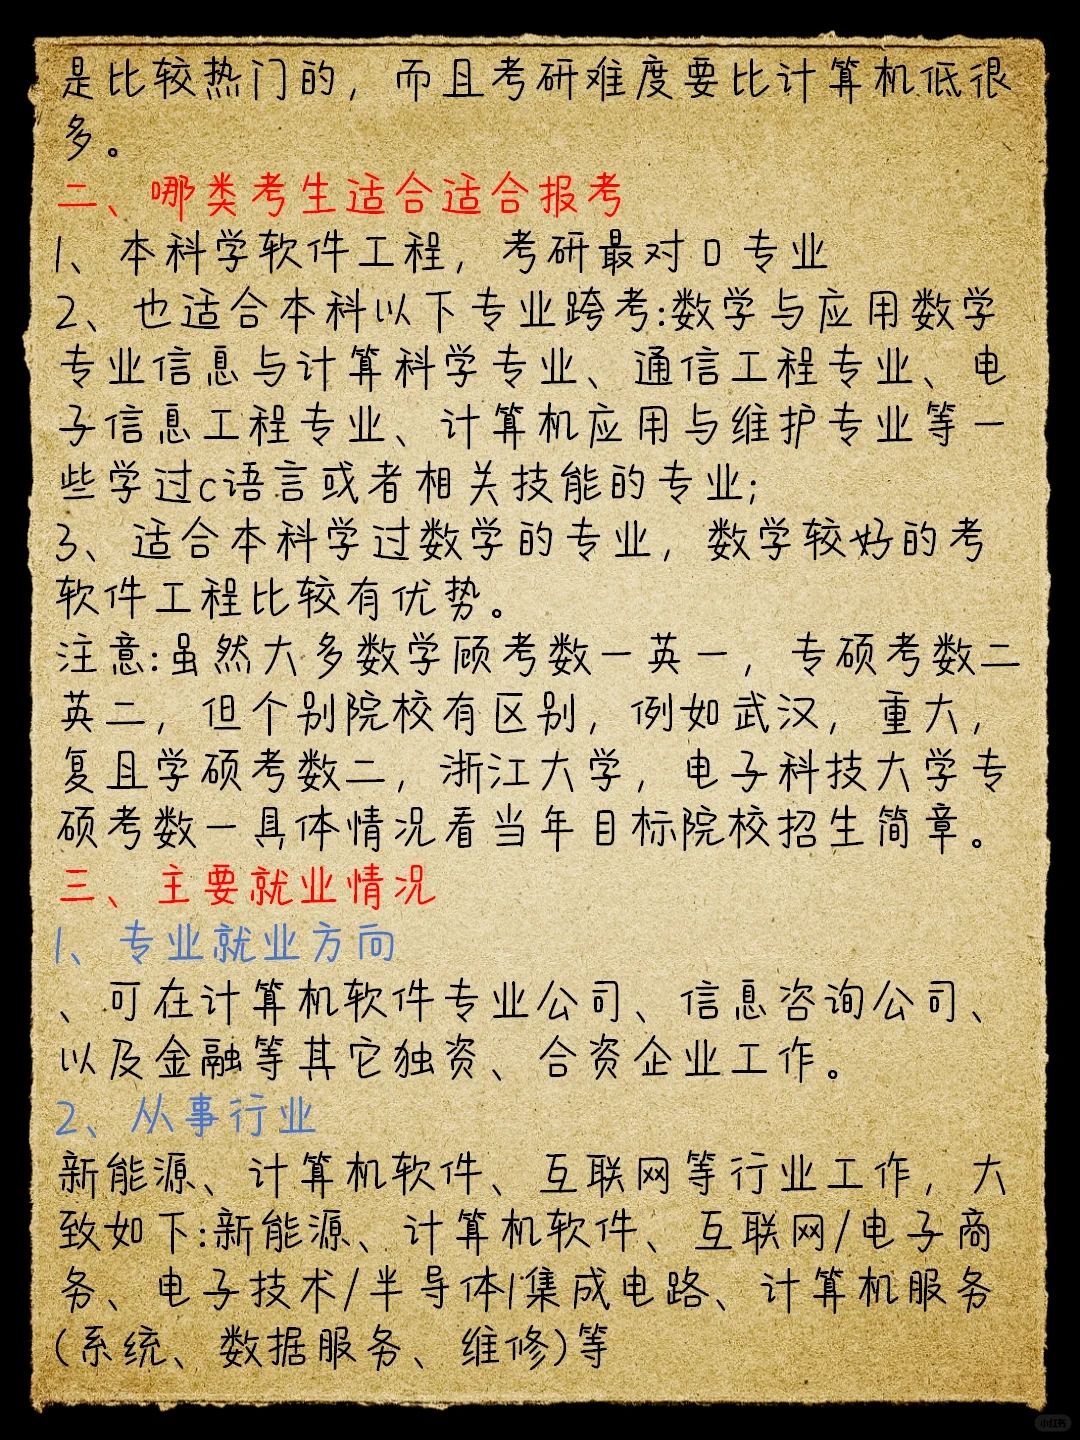 是比较热门的，而且考研难度要比计算机低很
多。
二、哪类考生适合适合报考
1、本科学软件工程，考研最对口专业
2、也适合本科以下专业跨考:数学与应用数学
专业信息与计算科学专业、通信工程专业、电
子信息工程专业、计算机应用与维护专业等一
些学过c语言或者相关技能的专业;
3、适合本科学过数学的专业，数学较好的考
软件工程比较有优势。
注意:虽然大多数学顾考数一英一，专硕考数二
英二，但个别院校有区别，例如武汉，重大，
复且学硕考数二，浙江大学，电子科技大学专
硕考数一具体情况看当年目标院校招生简章。
三、主要就业情况
1、专业就业方向
、可在计算机软件专业公司、信息咨询公司、
以及金融等其它独资、合资企业工作。
2、从事行业
新能源、计算机软件、互联网等行业工作，大
致如下:新能源、计算机软件、互联网/电子商
务、电子技术/半导体|集成电路、计算机服务
(系统、数据服务、维修)等
小红书